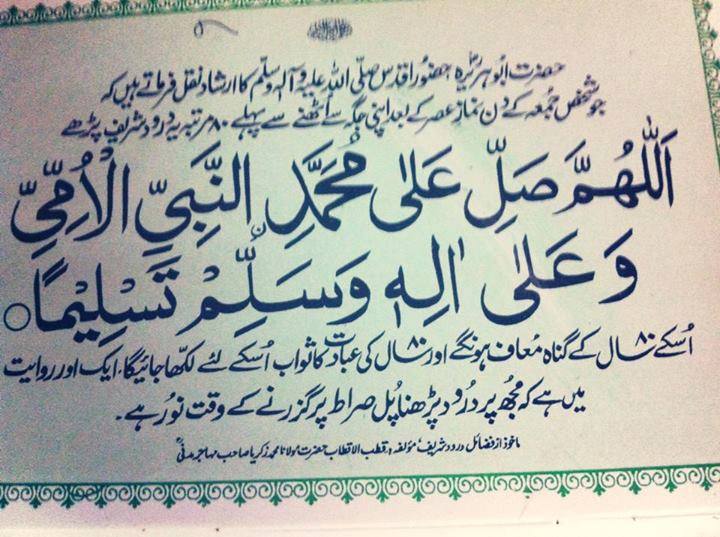 حضرت ابوہریرہؓ حضورِ اقدس صلی اللہ علیہ و آلہٖ وسلم کا ارشاد نقل فرماتے ہیں کہ
جو شخص جمعہ کے دن نمازِ عصر کے بعد اپنی جگہ سے اُٹھنے سے پہلے ۸۰ مرتبہ یہ درود شریف پڑھے
اَللّٰهُمَّ صَلِّ عَلٰى مُحَمَّدِ ۨ النَّبِيِّ الْاُمِّيِّ
وَعَلٰى اٰلِهٖ وَسَلِّمْ تَسْلِيْمًا ○
اُسکے ۸۰ سال کے گناہ معاف ہونگے اور ۸۰ سال کی عبادت کا ثواب اُسکے لئے لکھا جائیگا۔ ایک اور روایت
میں ہے کہ مجھ پر درود پڑھنا پل صراط پر گزرنے کے وقت نور ہے۔
ماخوذ از فضائل درود شریف مؤلفہ، قطب الاقطاب حضرت مولانا محمد زکریا صاحب مہاجر مدنیؒ